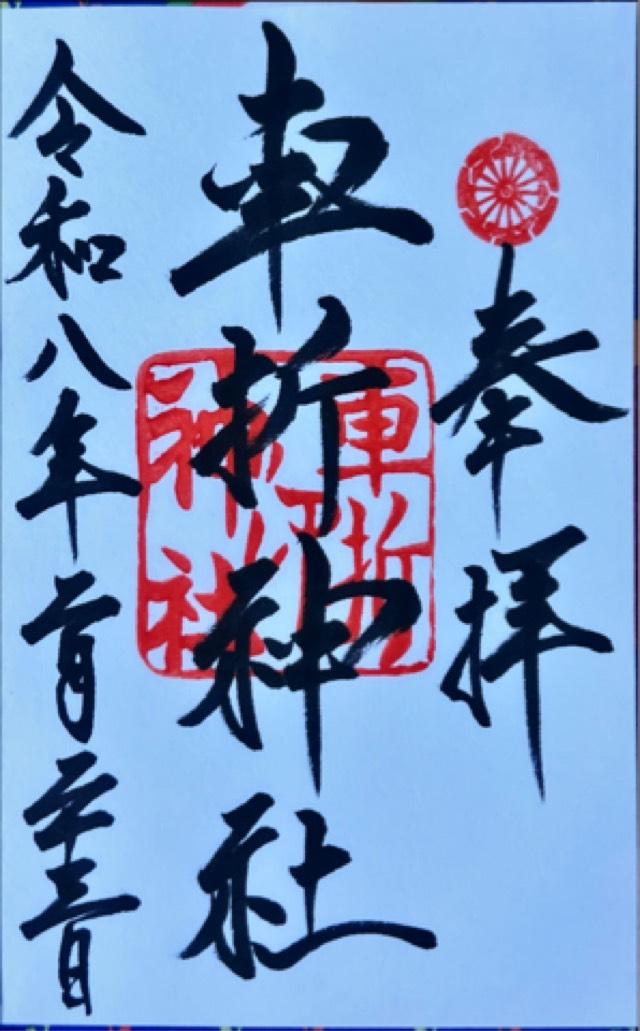 奉拝
車折神社
令和八年二月二十三日
車折
神社